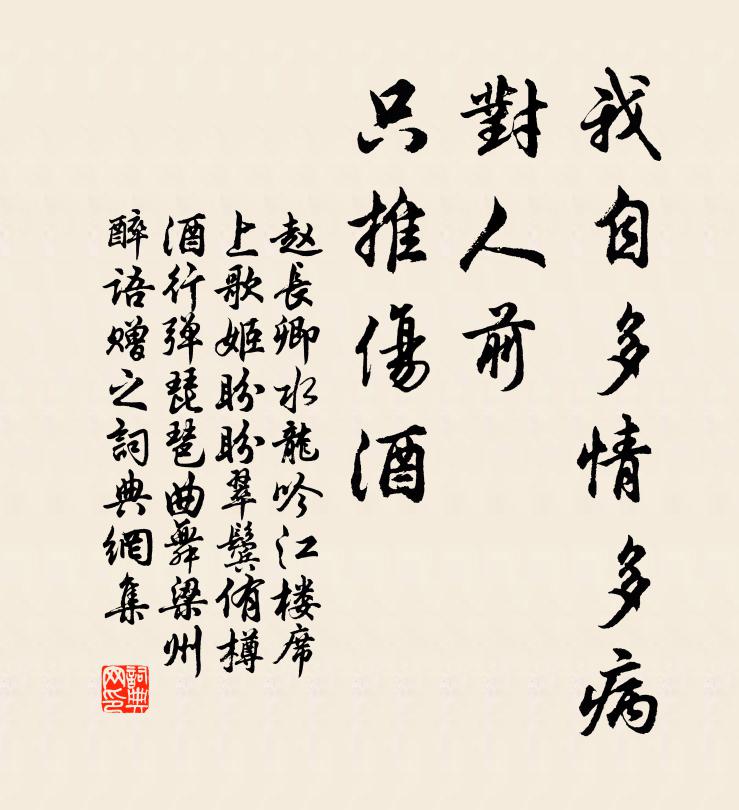 我自多情多病
對人前
只推傷酒
赵長卿水龍吟江楼席
上歌姬盼盼翠鬟侑樽
酒行弹琵琶曲舞梁州
醉語赠之詞典網集
詞典
网印